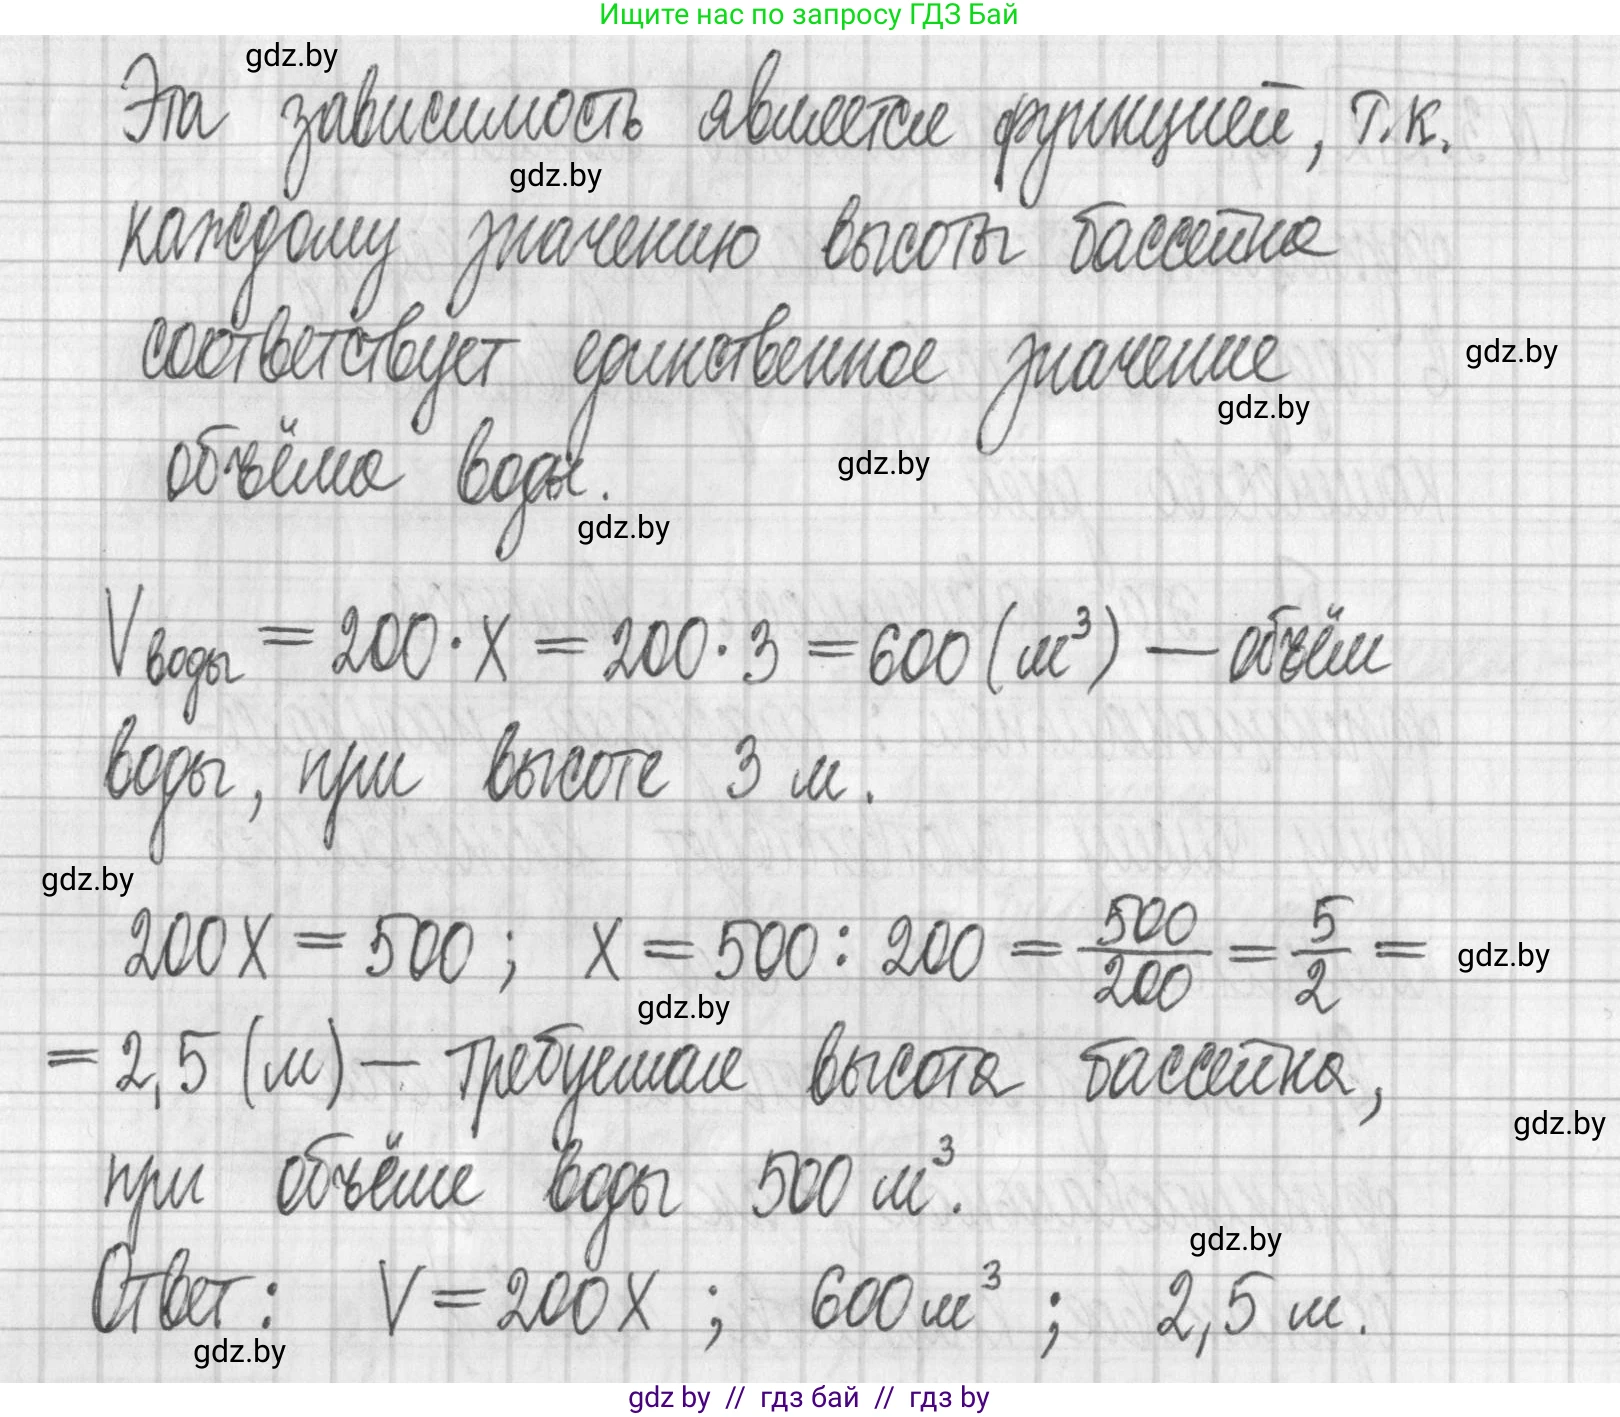 Ищите нас по запросу ГДЗ Бай
gdz.by
Эта зависимость является функцией, т.к.
gdz.by
каждому значению высоты бассейна
соответствует единственное значение
gdz.by
gdz.by
объёма воды.
gdz.by
gdz.by
Vводы = 200 · x = 200 · 3 = 600 (м³) — объём
воды, при высоте 3 м.
gdz.by
200x = 500 ; x = 500 : 200 = 500/200 = 5/2 =
gdz.by
gdz.by
= 2,5 (м) — требуемая высота бассейна,
gdz.by
при объёме воды 500 м³.
gdz.by
Ответ: V = 200x ; 600 м³ ; 2,5 м.
gdz.by
gdz by // гдз бай // гдз by